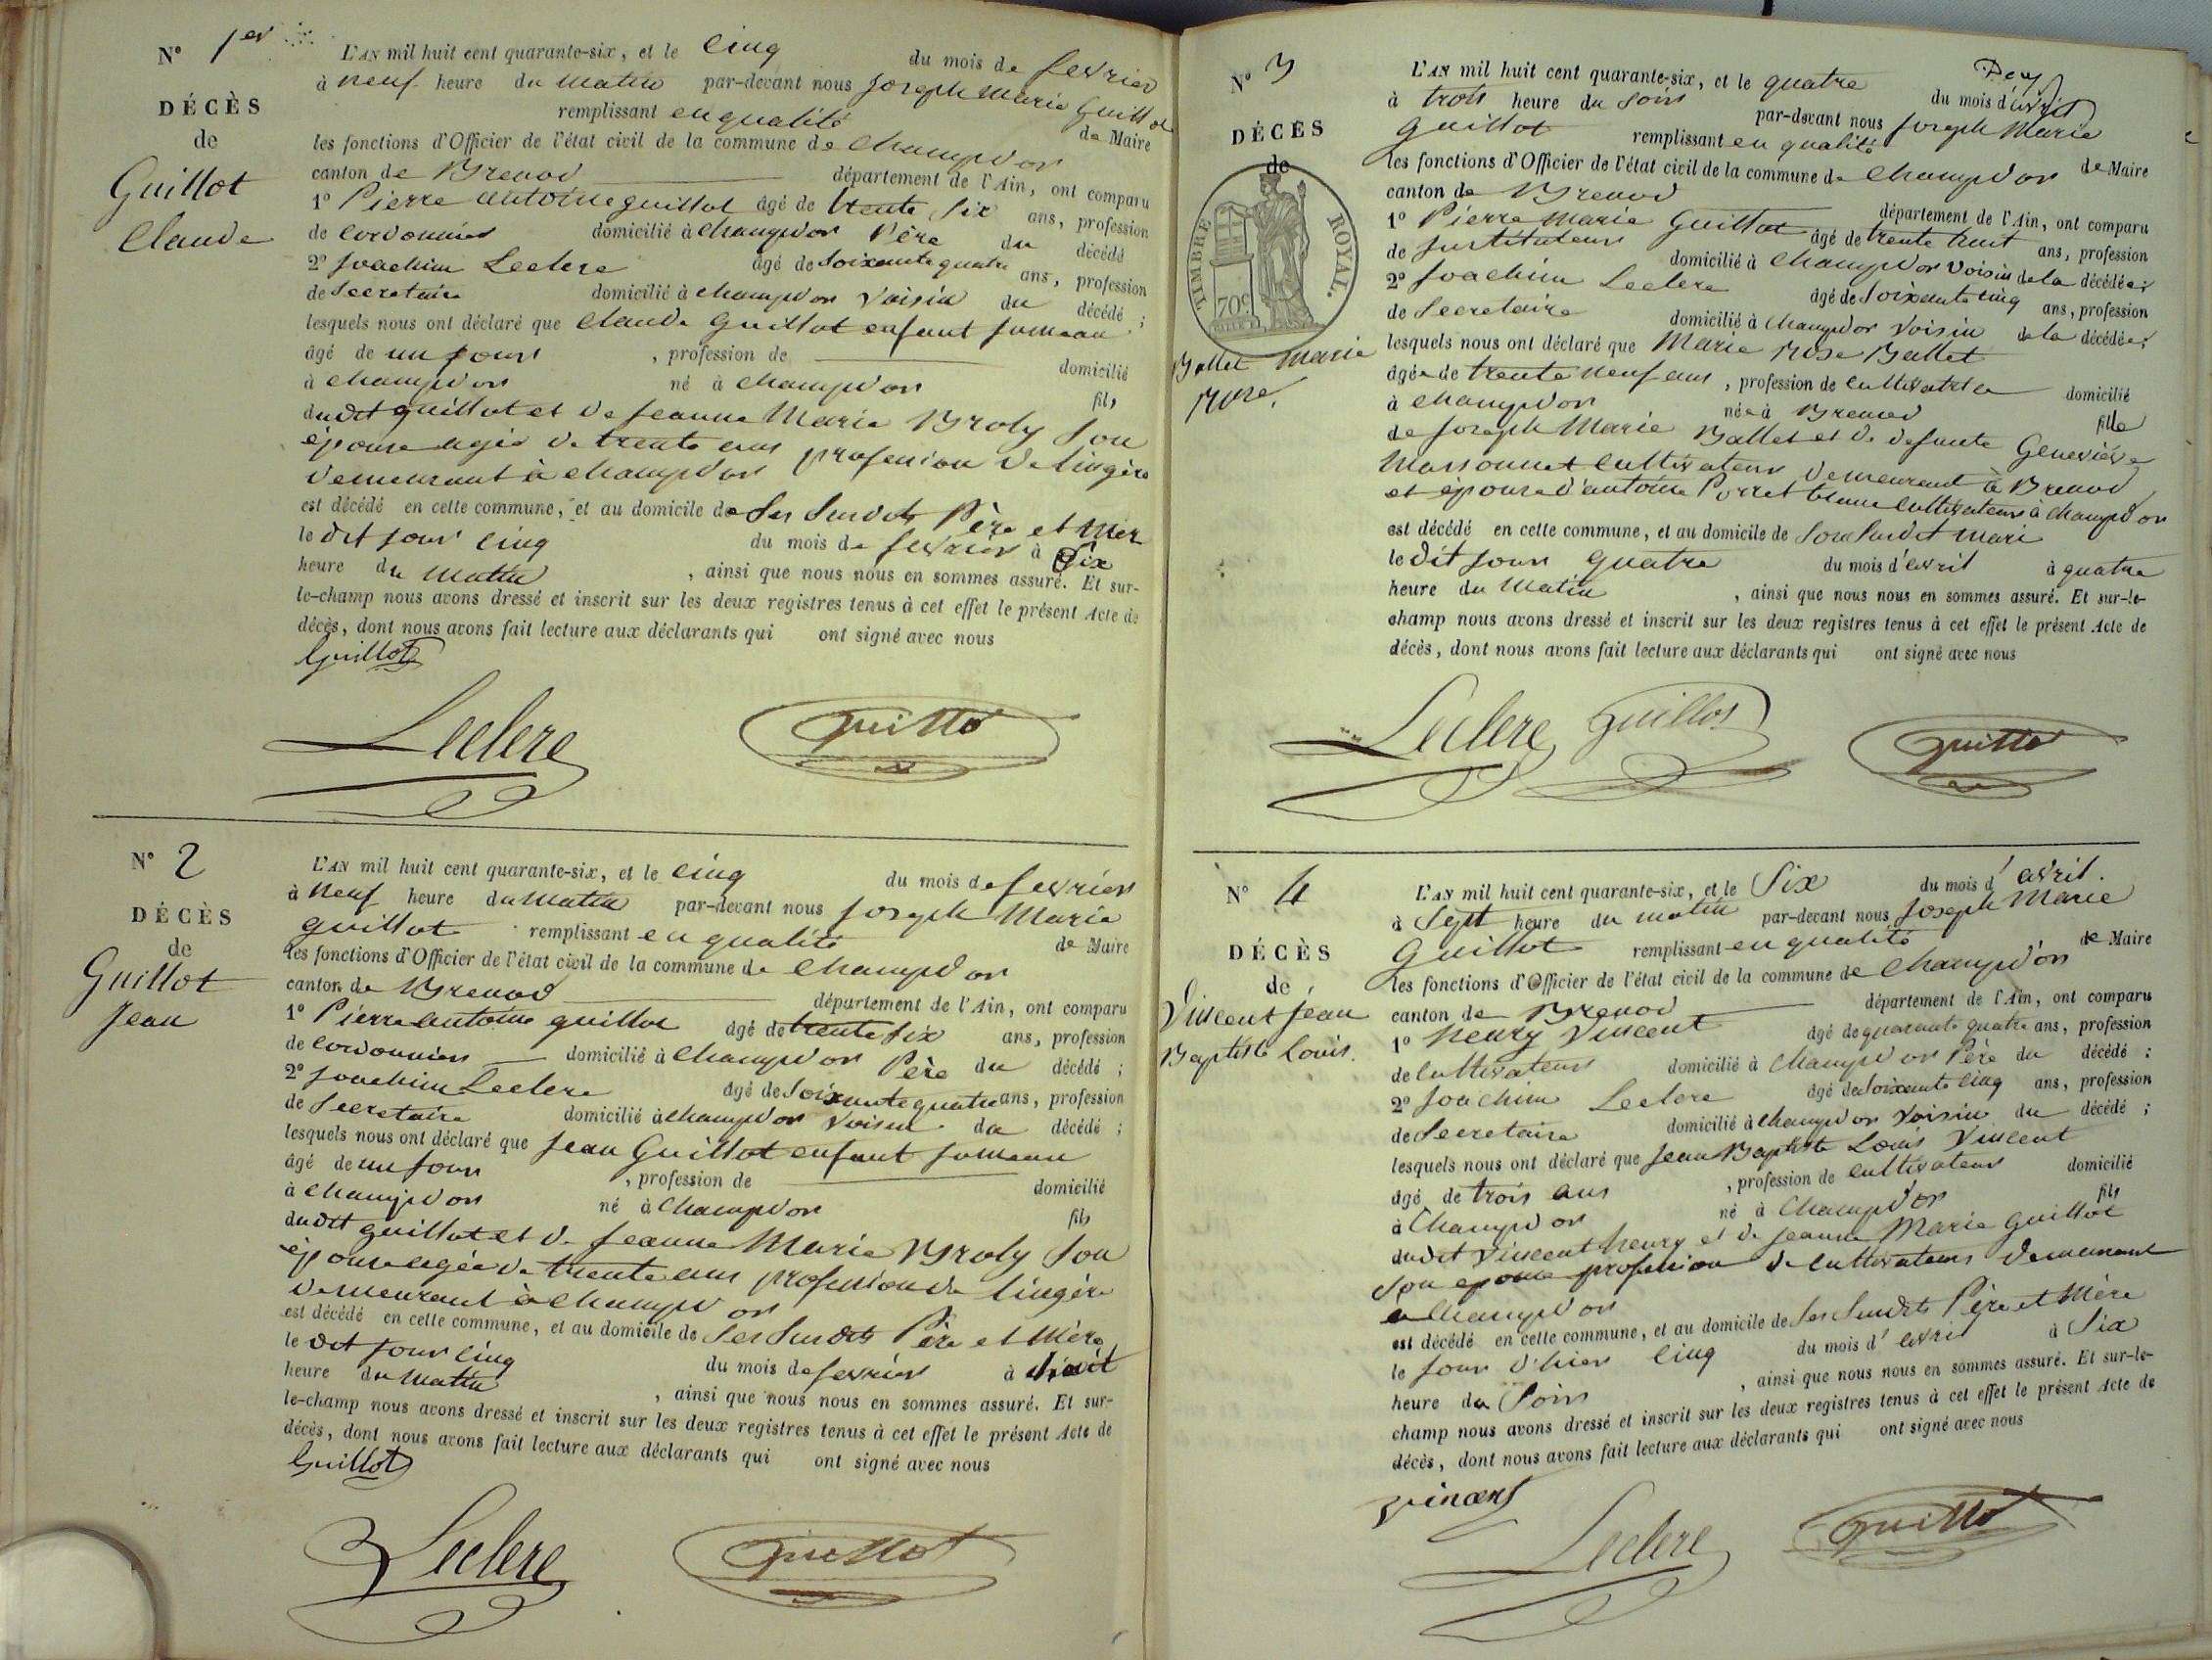 N° 1er
DÉCÈS
de
Guillot
Claude
L'AN mil huit cent quarante-six, et le cinq du mois de fevrier
à neuf heure du matin par-devant nous Joseph Marie Guillot
remplissant en qualité de Maire
les fonctions d'Officier de l'état civil de la commune de Champdor
canton de Brenod département de l'Ain, ont comparu
1° Pierre antoine guillot âgé de trente six ans, profession
de cordonnier domicilié à champdor Père du décédé
2° Joachim Leclere âgé de soixante quatre ans, profession
de Secretaire domicilié à champdor voisin du décédé ;
lesquels nous ont déclaré que Claude Guillot enfant jumeau
âgé de un jour , profession de domicilié
à champdor né à champdor fils
dudit guillot et de jeanne Marie Broly son
épouse agée de trente ans profession de lingère
demeurant à champdor
est décédé en cette commune, et au domicile de ses susdits Père et Mer
le dit jour cinq du mois de fevrier à Six
heure du matin , ainsi que nous nous en sommes assuré. Et sur-
le-champ nous avons dressé et inscrit sur les deux registres tenus à cet effet le présent Acte de
décès, dont nous avons fait lecture aux déclarants qui ont signé avec nous
Guillot
Leclere Guillot
N° 2
DÉCÈS
de
Guillot
Jean
L'AN mil huit cent quarante-six, et le cinq du mois de fevrier
à neuf heure du matin par-devant nous Joseph Marie
guillot remplissant en qualité de Maire
les fonctions d'Officier de l'état civil de la commune de Champdor
canton de Brenod département de l'Ain, ont comparu
1° Pierre antoine guillot âgé de trente six ans, profession
de cordonnier domicilié à Champdor Père du décédé ;
2° Joachim Leclere âgé de soixante quatre ans, profession
de Secretaire domicilié à champdor voisin du décédé ;
lesquels nous ont déclaré que Jean Guillot enfant jumeau
âgé de un jour , profession de domicilié
à champdor né à Champdor fils
dudit guillot et de Jeanne Marie Broly son
épouse agée de trente ans profession de lingère
demeurant à champdor
est décédé en cette commune, et au domicile de ses susdits Père et Mère
le dit jour cinq du mois de fevrier à
heure du matin , ainsi que nous nous en sommes assuré. Et sur-
le-champ nous avons dressé et inscrit sur les deux registres tenus à cet effet le présent Acte de
décès, dont nous avons fait lecture aux déclarants qui ont signé avec nous
Guillot
Leclere Guillot
N° 3
DÉCÈS
de
TIMBRE ROYAL.
70c
Ballet Marie
Rose.
L'AN mil huit cent quarante-six, et le quatre du mois d'avril
à trois heure du soir par-devant nous Joseph Marie
Guillot remplissant en qualité de Maire
les fonctions d'Officier de l'état civil de la commune de Champdor
canton de Brenod département de l'Ain, ont comparu
1° Pierre Marie Guillot âgé de trente huit ans, profession
de Instituteur domicilié à Champdor voisin de la décédée ;
2° Joachim Leclere âgé de soixante cinq ans, profession
de Secretaire domicilié à champdor voisin de la décédée ;
lesquels nous ont déclaré que Marie Rose Ballet
âgée de trente neuf ans , profession de cultivatrice domicilié
à champdor née à Brenod fille
de Joseph Marie Ballet et de defunte Geneviève
Massonnet cultivateur demeurant à Brenod
et épouse d'antoine Porret cultivateur à champdor
est décédé en cette commune, et au domicile de son susdit mari
le dit jour quatre du mois d'avril à quatre
heure du matin , ainsi que nous nous en sommes assuré. Et sur-le-
champ nous avons dressé et inscrit sur les deux registres tenus à cet effet le présent Acte de
décès, dont nous avons fait lecture aux déclarants qui ont signé avec nous
Leclere Guillot Guillot
N° 4
DÉCÈS
de
Vincent Jean
Baptiste Louis.
L'AN mil huit cent quarante-six, et le Six du mois d'avril.
à Sept heure du matin par-devant nous Joseph Marie
Guillot remplissant en qualité de Maire
les fonctions d'Officier de l'état civil de la commune de Champdor
canton de Brenod département de l'Ain, ont comparu
1° henry Vincent âgé de quarante quatre ans, profession
de cultivateur domicilié à Champdor Père du décédé :
2° Joachim Leclere âgé de soixante cinq ans, profession
de Secretaire domicilié à champdor voisin du décédé ;
lesquels nous ont déclaré que Jean Baptiste Louis Vincent
âgé de trois ans , profession de cultivateur domicilié
à Champdor né à Champdor fils
dudit Vincent henry et de jeanne Marie Guillot
son epouse profession de cultivateurs demeurant
a Champdor
est décédé en cette commune, et au domicile de ses susdits Père et Mère
le jour d'hier cinq du mois d'avril à Six
heure du Soir , ainsi que nous nous en sommes assuré. Et sur-le-
champ nous avons dressé et inscrit sur les deux registres tenus à cet effet le présent Acte de
décès, dont nous avons fait lecture aux déclarants qui ont signé avec nous
vincent
Leclere Guillot